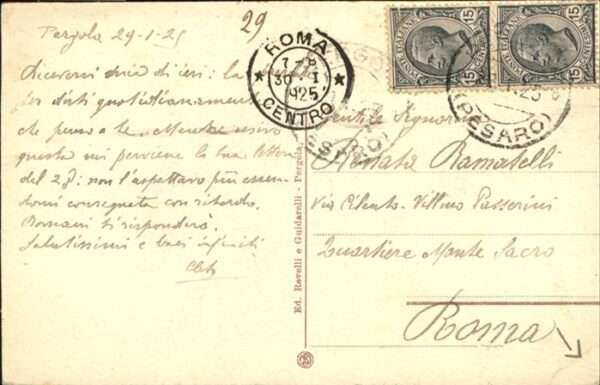 29
Pergola 29-1-25
di ieri: la
quotidianamente
che penso a te. Mentre
questa mi perviene la tua lettera
del 28: non l'aspettavo più essen-
domi consegnata con ritardo.
Domani ti risponderò.
Salutissimi e baci infiniti
ROMA
7-8
30·I
1925
CENTRO
POSTE ITALIANE
15
POSTE ITALIANE
15
25
(PESARO)
Gentile Signorina
Renata Ramatelli
Via Cilento-Villino Passerini
Quartiere Monte Sacro
Roma
Ed. Ravelli e Guidarelli - Pergola